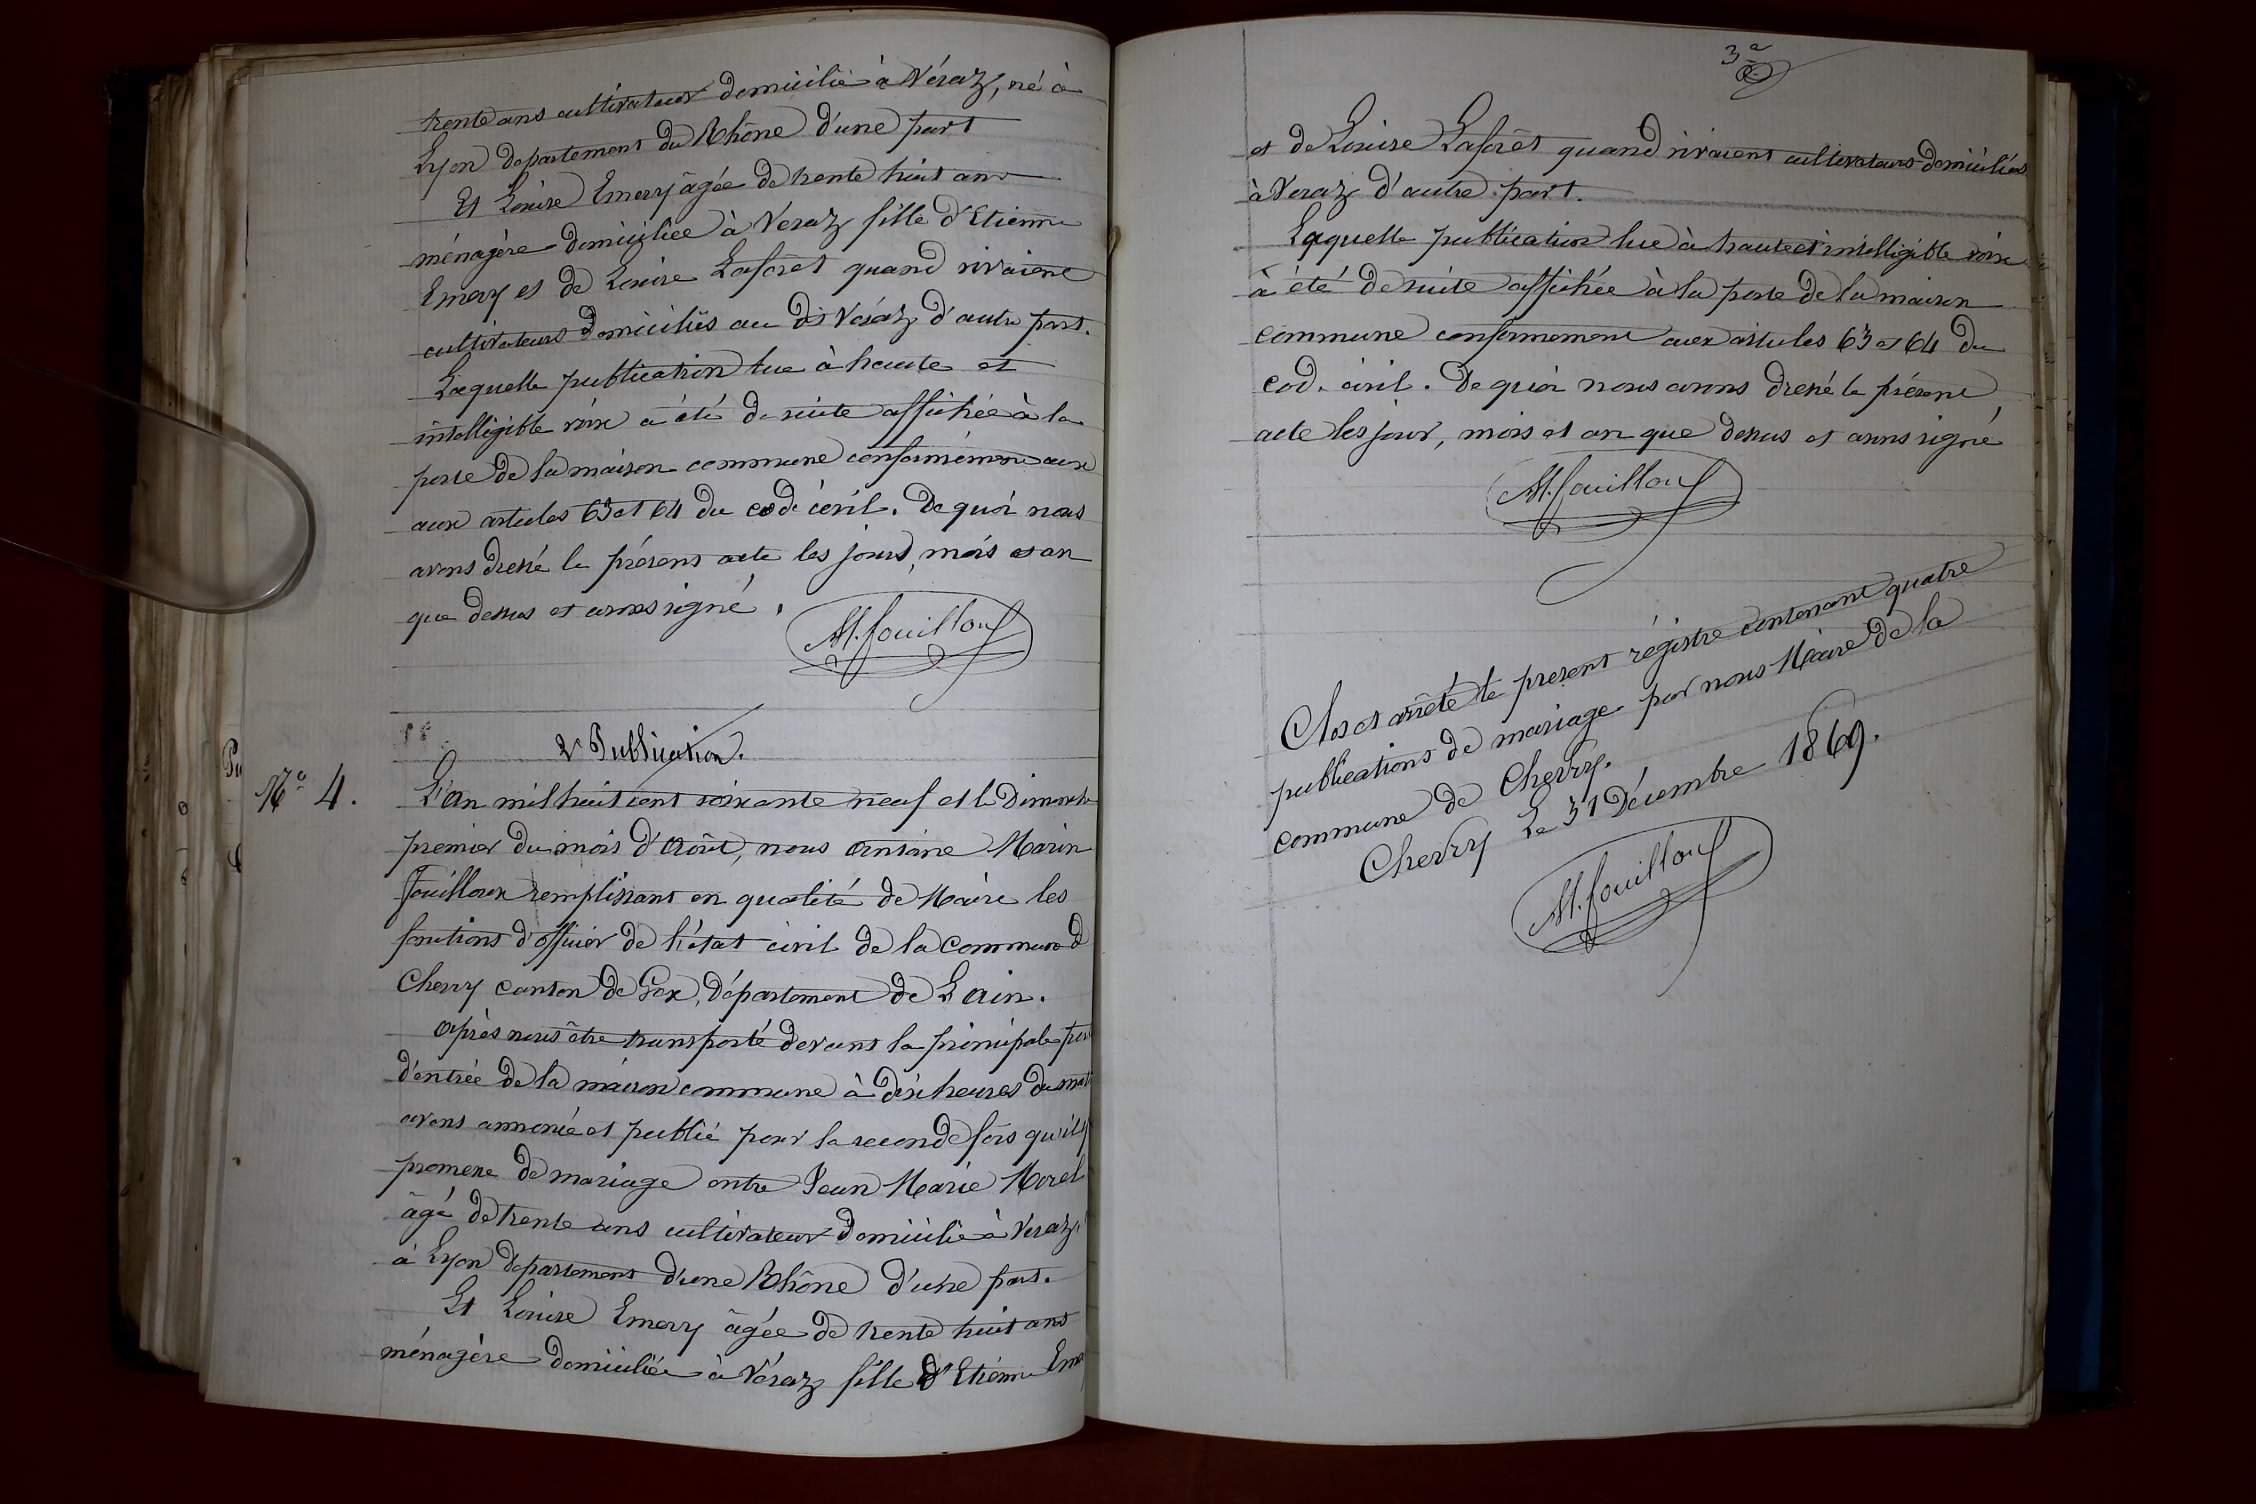 trente ans cultivateur domicilié à Véraz, né à
Lyon departement du Rhône d'une part
Et Louise Emery âgée de trente huit ans
ménagère domiciliée à Véraz fille d'Etienne
Emery et de Louise Laforêt quand vivaient
cultivateurs domiciliés au dit Véraz d'autre part.
Laquelle publication lue à haute et
intelligible voix a été de suite affichée à la
porte de la maison commune conformément aux
aux articles 63 et 64 du code civil. De quoi nous
avons dressé le présent acte les jours, mois et an
que dessus et avons signé.
M. fouilloux
2e Publication.
No 4.
L'an mil huit cent soixante neuf et le Dimanche
premier du mois d'Août, nous Antoine Marin
Fouilloux remplissant en qualité de Maire les
fonctions d'officier de l'état civil de la commune d
Chevry canton de Gex, département de L'ain.
Après nous être transporté devant la principale por
d'entrée de la maison commune à dix heures du mati
avons annoncé et publié pour la seconde fois qu'il y
promesse de mariage entre Jean Marie Morel
âgé de trente ans cultivateur domicilié à Véraz,
à Lyon departement d'une Rhône d'une part.
Et Louise Emery âgée de trente huit ans
ménagère domiciliée à Véraz fille d'Etienne Eme
3e
et de Louise Laforêt quand vivaient cultivateurs domiciliés
à Veraz d'autre part.
Laquelle publication lue à haute et intelligible voix
à été de suite affichée à la porte de la maison
commune conformement aux articles 63 et 64 du
cod. civil. De quoi nous avons dressé le présent
acte les jour, mois et an que dessus et avons signé
M. fouilloux
Clos et arrêté le present régistre contenant quatre
publications de mariage par nous Maire de la
commune de Chevry.
Chevry Le 31 Décembre 1869.
M. fouilloux